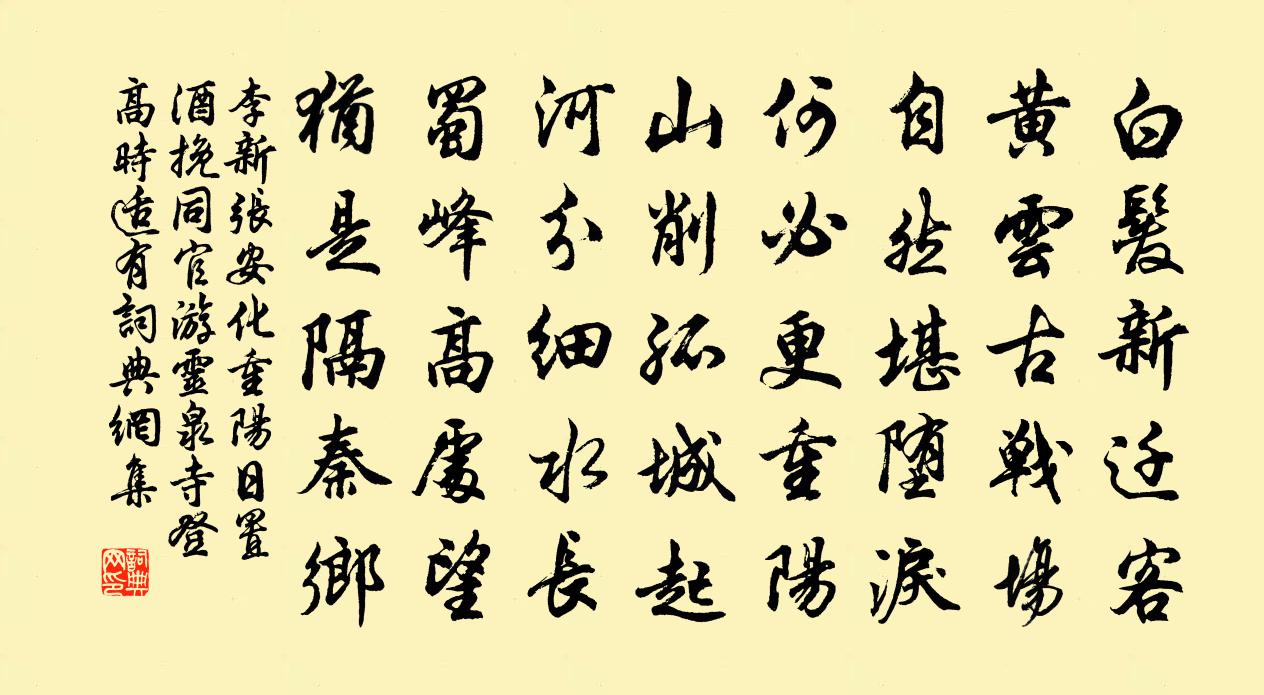 白髮新迁客
黃雲古戰場
自然堪墮淚
何必更重陽
山削孤城起
河分細水長
蜀峰高處望
猶是隔秦鄉
李新張安化重陽日置
酒挽同官游靈泉寺登
高時适有詞典網集
詞典網印